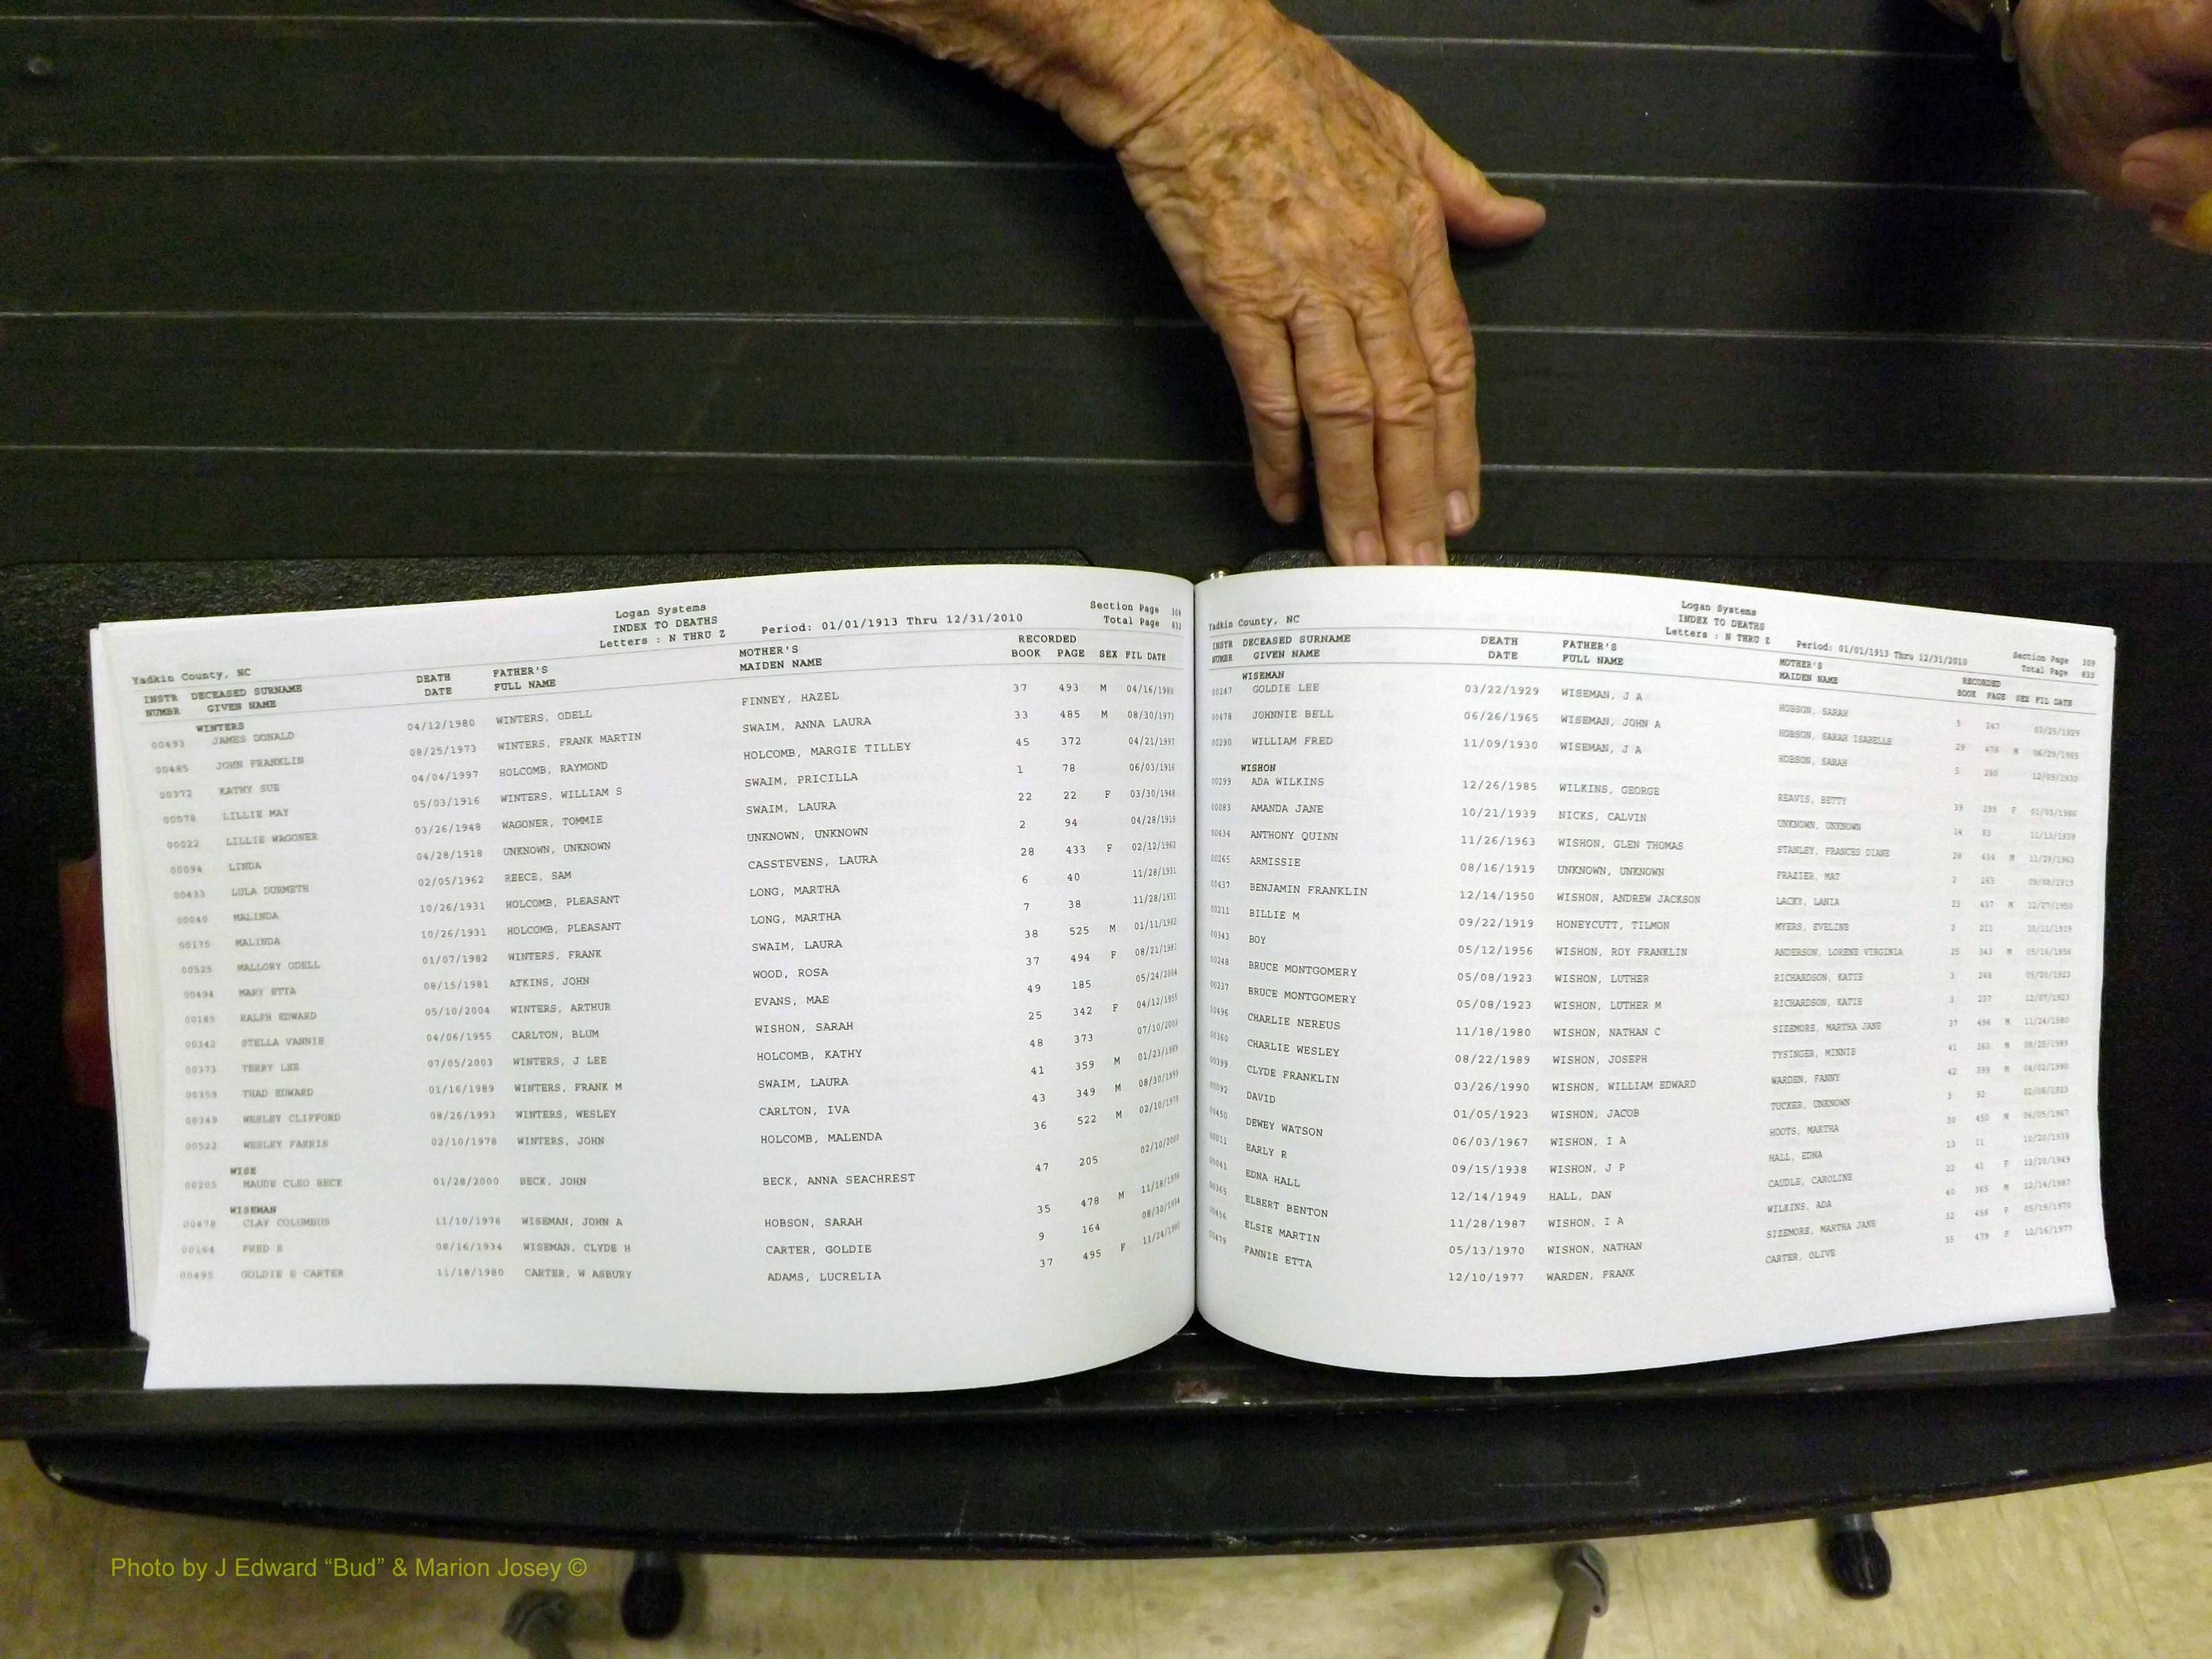 Logan Systems
INDEX TO DEATHS
Letters : N THRU Z
Period: 01/01/1913 Thru 12/31/2010
Section Page 308
Total Page 632
Yadkin County, NC
INSTR DECEASED SURNAME DEATH FATHER'S MOTHER'S RECORDED
NUMBR GIVEN NAME DATE FULL NAME MAIDEN NAME BOOK PAGE SEX FIL DATE
WINTERS
00493 JAMES DONALD 04/12/1980 WINTERS, ODELL FINNEY, HAZEL 37 493 M 04/16/1980
00485 JOHN FRANKLIN 08/25/1973 WINTERS, FRANK MARTIN SWAIM, ANNA LAURA 33 485 M 08/30/1973
00372 KATHY SUE 04/04/1997 HOLCOMB, RAYMOND HOLCOMB, MARGIE TILLEY 45 372 04/21/1997
00078 LILLIE MAY 05/03/1916 WINTERS, WILLIAM S SWAIM, PRICILLA 1 78 06/03/1916
00022 LILLIE WAGONER 03/26/1948 WAGONER, TOMMIE SWAIM, LAURA 22 22 F 03/30/1948
00094 LINDA 04/28/1918 UNKNOWN, UNKNOWN UNKNOWN, UNKNOWN 2 94 04/28/1918
00433 LULA DURMETH 02/05/1962 REECE, SAM CASSTEVENS, LAURA 28 433 F 02/12/1962
00040 MALINDA 10/26/1931 HOLCOMB, PLEASANT LONG, MARTHA 6 40 11/28/1931
00175 MALINDA 10/26/1931 HOLCOMB, PLEASANT LONG, MARTHA 7 38 11/28/1931
00525 MALLORY ODELL 01/07/1982 WINTERS, FRANK SWAIM, LAURA 38 525 M 01/11/1982
00494 MARY ETTA 08/15/1981 ATKINS, JOHN WOOD, ROSA 37 494 F 08/21/1981
00185 RALPH EDWARD 05/10/2004 WINTERS, ARTHUR EVANS, MAE 49 185 05/24/2004
00342 STELLA VANNIE 04/06/1955 CARLTON, BLUM WISHON, SARAH 25 342 F 04/12/1955
00373 TERRY LEE 07/05/2003 WINTERS, J LEE HOLCOMB, KATHY 48 373 07/10/2003
00359 THAD EDWARD 01/16/1989 WINTERS, FRANK M SWAIM, LAURA 41 359 M 01/23/1989
00349 WESLEY CLIFFORD 08/26/1993 WINTERS, WESLEY CARLTON, IVA 43 349 M 08/30/1993
00522 WESLEY FARRIS 02/10/1978 WINTERS, JOHN HOLCOMB, MALENDA 36 522 M 02/10/1978
WISE
00205 MAUDE CLEO BECK 01/28/2000 BECK, JOHN BECK, ANNA SEACHREST 47 205 02/10/2000
WISEMAN
00478 CLAY COLUMBUS 11/10/1976 WISEMAN, JOHN A HOBSON, SARAH 35 478 M 11/18/1976
00164 FRED E 08/16/1934 WISEMAN, CLYDE H CARTER, GOLDIE 9 164 08/30/1934
00495 GOLDIE E CARTER 11/18/1980 CARTER, W ASBURY ADAMS, LUCRELIA 37 495 F 11/24/1980
Logan Systems
INDEX TO DEATHS
Letters : N THRU Z
Period: 01/01/1913 Thru 12/31/2010
Section Page 309
Total Page 633
Yadkin County, NC
INSTR DECEASED SURNAME DEATH FATHER'S MOTHER'S RECORDED
NUMBR GIVEN NAME DATE FULL NAME MAIDEN NAME BOOK PAGE SEX FIL DATE
WISEMAN
00247 GOLDIE LEE 03/22/1929 WISEMAN, J A HOBSON, SARAH 5 247 03/25/1929
00478 JOHNNIE BELL 06/26/1965 WISEMAN, JOHN A HOBSON, SARAH ISABELLE 29 478 M 06/29/1965
00290 WILLIAM FRED 11/09/1930 WISEMAN, J A HOBSON, SARAH 5 290 12/09/1930
WISHON
00299 ADA WILKINS 12/26/1985 WILKINS, GEORGE REAVIS, BETTY 39 299 F 01/03/1986
00083 AMANDA JANE 10/21/1939 NICKS, CALVIN UNKNOWN, UNKNOWN 14 83 11/13/1939
00434 ANTHONY QUINN 11/26/1963 WISHON, GLEN THOMAS STANLEY, FRANCES DIANE 28 434 M 11/29/1963
00265 ARMISSIE 08/16/1919 UNKNOWN, UNKNOWN FRAZIER, MAT 2 265 09/08/1919
00437 BENJAMIN FRANKLIN 12/14/1950 WISHON, ANDREW JACKSON LACKY, LANIA 23 437 M 12/27/1950
00211 BILLIE M 09/22/1919 HONEYCUTT, TILMON MYERS, EVELINE 2 211 10/11/1919
00343 BOY 05/12/1956 WISHON, ROY FRANKLIN ANDERSON, LORENE VIRGINIA 25 343 M 05/16/1956
00248 BRUCE MONTGOMERY 05/08/1923 WISHON, LUTHER RICHARDSON, KATIE 3 248 05/20/1923
00237 BRUCE MONTGOMERY 05/08/1923 WISHON, LUTHER M RICHARDSON, KATIE 3 237 12/07/1923
00496 CHARLIE NEREUS 11/18/1980 WISHON, NATHAN C SIZEMORE, MARTHA JANE 37 496 M 11/24/1980
00360 CHARLIE WESLEY 08/22/1989 WISHON, JOSEPH TYSINGER, MINNIE 41 360 M 08/25/1989
00399 CLYDE FRANKLIN 03/26/1990 WISHON, WILLIAM EDWARD WARDEN, FANNY 42 399 M 04/02/1990
00092 DAVID 01/05/1923 WISHON, JACOB TUCKER, UNKNOWN 3 92 02/08/1923
00450 DEWEY WATSON 06/03/1967 WISHON, I A HOOTS, MARTHA 30 450 M 06/05/1967
00011 EARLY R 09/15/1938 WISHON, J P HALL, EDNA 13 11 10/20/1938
00041 EDNA HALL 12/14/1949 HALL, DAN CAUDLE, CAROLINE 22 41 F 12/20/1949
00365 ELBERT BENTON 11/28/1987 WISHON, I A WILKINS, ADA 40 365 M 12/14/1987
00456 ELSIE MARTIN 05/13/1970 WISHON, NATHAN SIZEMORE, MARTHA JANE 32 456 F 05/19/1970
00479 FANNIE ETTA 12/10/1977 WARDEN, FRANK CARTER, OLIVE 35 479 F 12/16/1977
Photo by J Edward “Bud” & Marion Josey ©